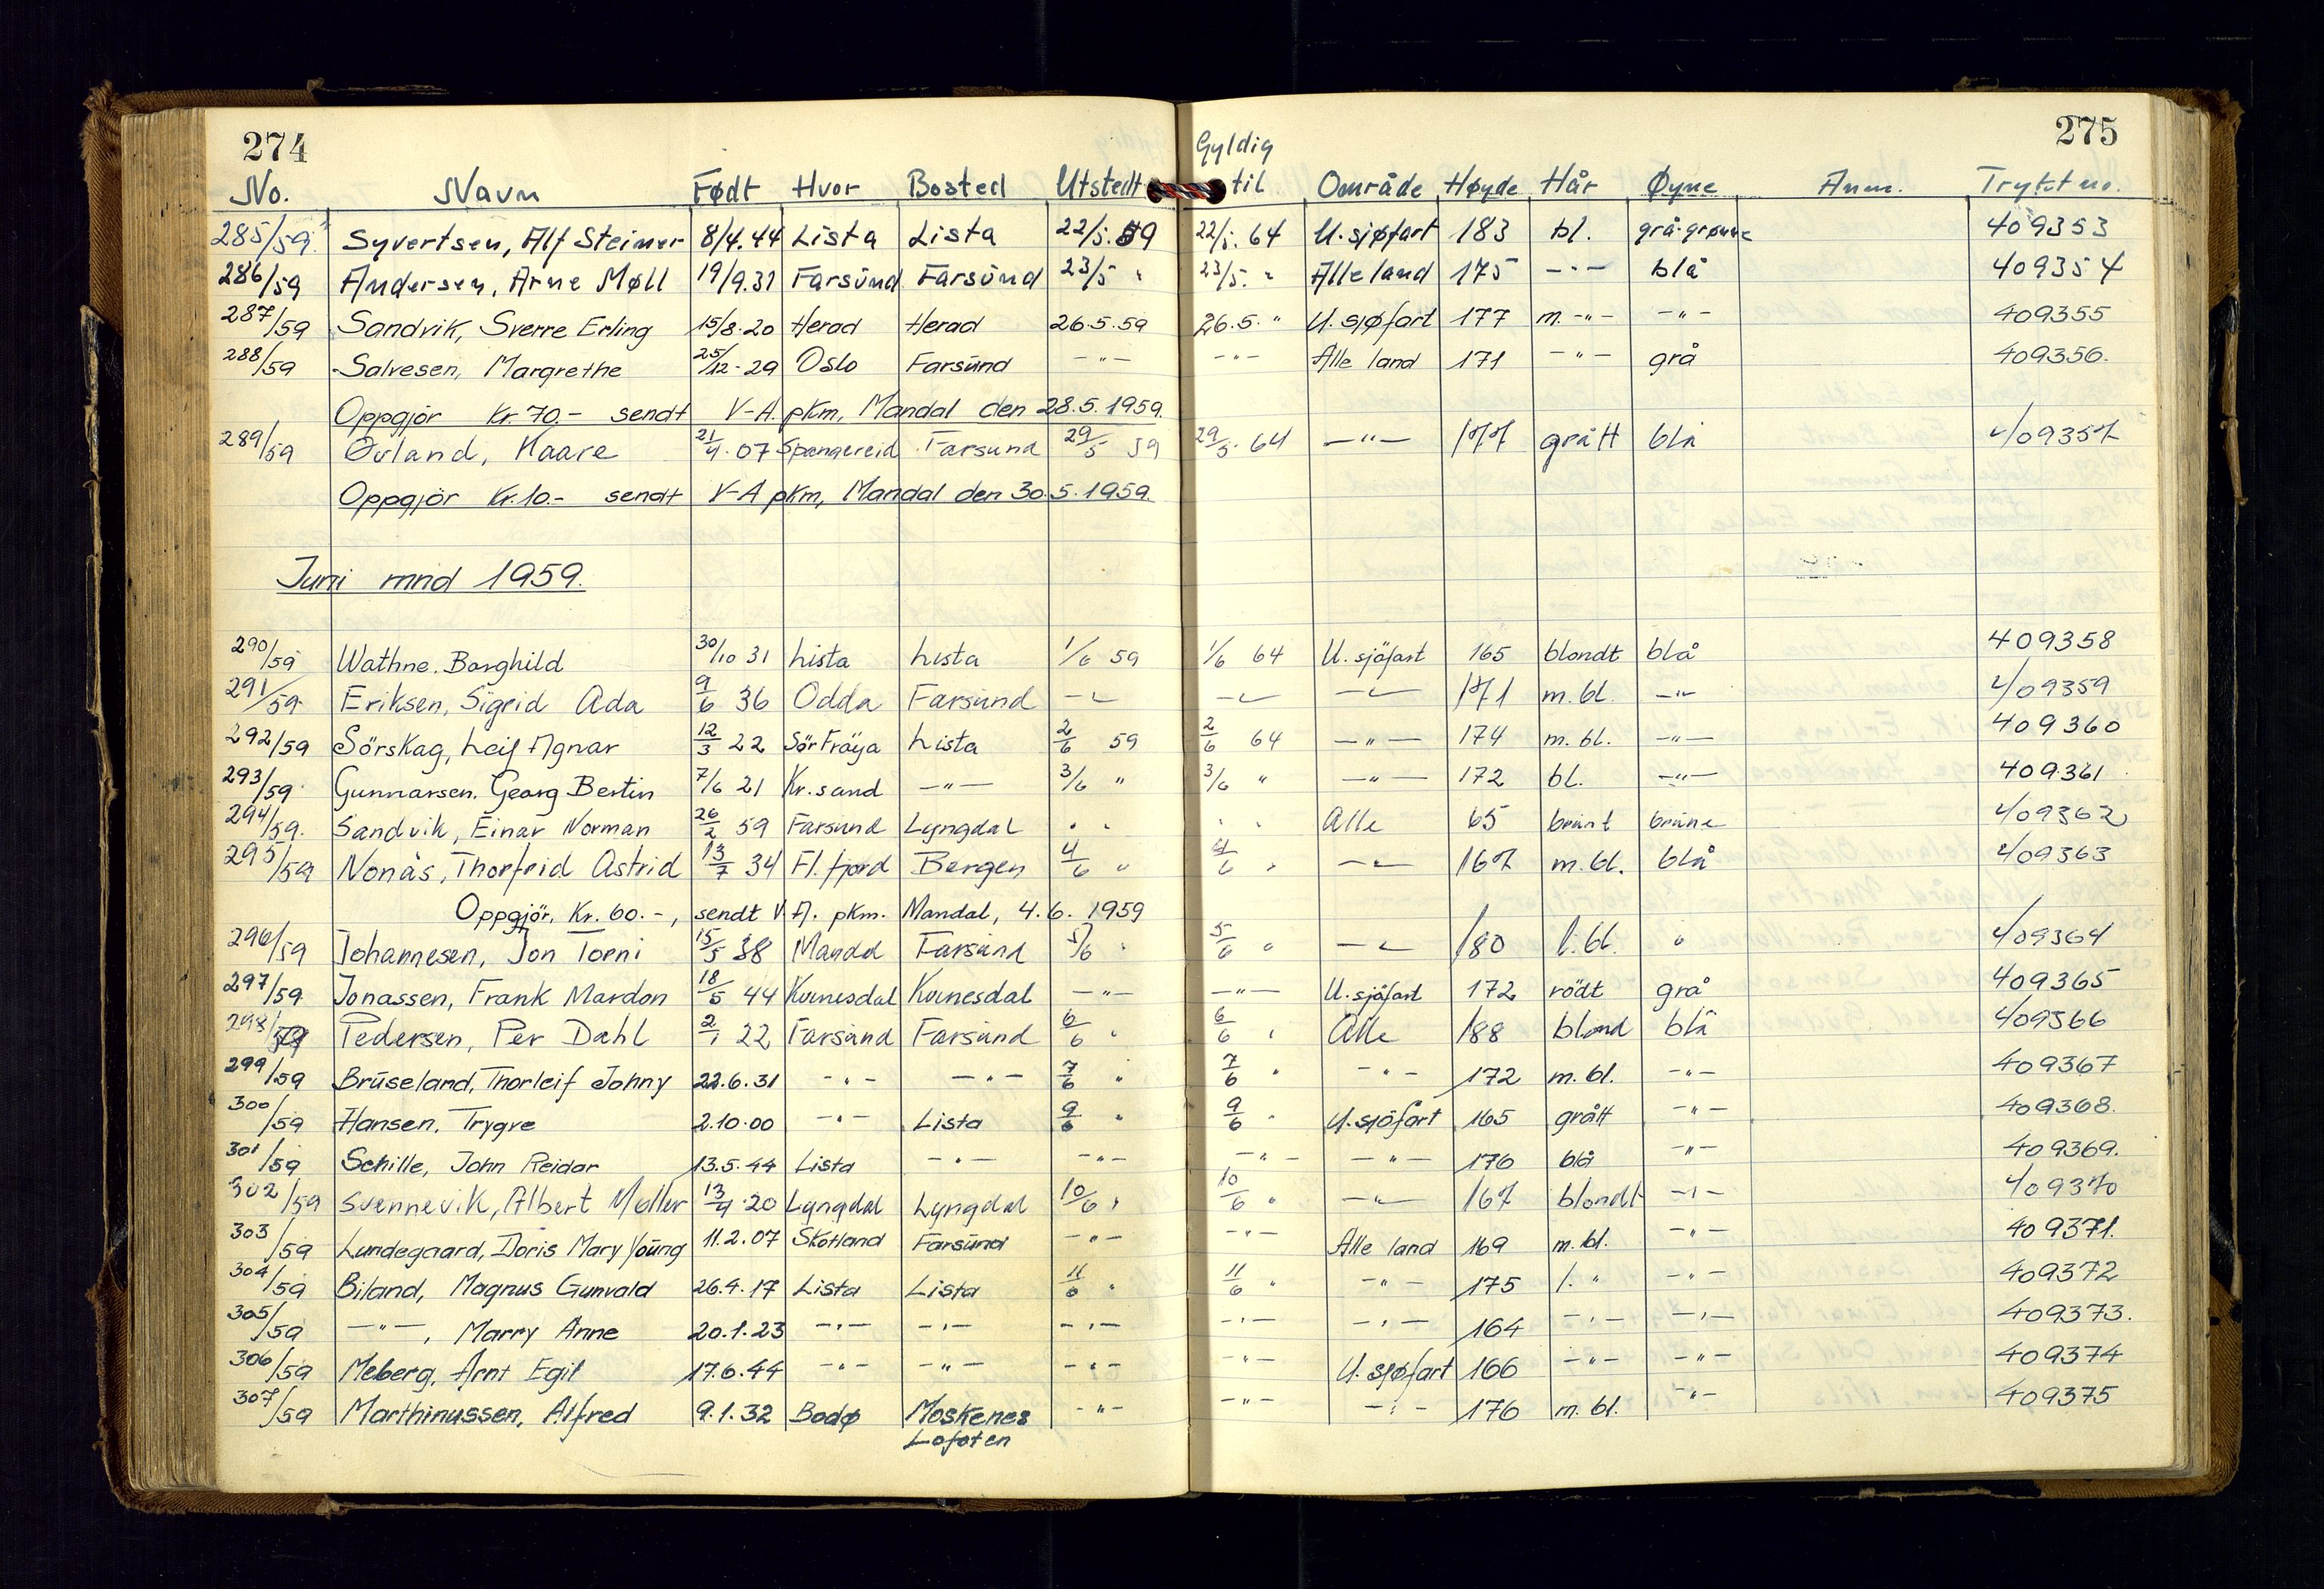 274 275
Gyldig
No. Navn Født Hvor Bosted Utstedt til Område Høyde Hår Øyne Anm. Trykt no.
285/59. Syvertsen, Alf Steinar 8/4.44 Lista Lista 22/5.59 22/5. 64 U.sjøfart 183 bl. grå-grønne 409353
286/59 Andersen, Arne Møll 19/9.31 Farsund Farsund 23/5 " 23/5. " Alle land 175 -"- blå 409354
287/59 Sandvik, Sverre Erling 15/8.20 Herad Herad 26.5.59 26.5. " U.sjøfart 177 m. -"- -"- 409355
288/59 Salvesen, Margrethe 25/12-29 Oslo Farsund -"- -"- Alle land 171 -"- grå 409356.
Oppgjör Kr. 70.- sendt V-A. pkm, Mandal den 28.5.1959.
289/59 Övland, Kaare 21/4.07 Spangereid Farsund 29/5 59 29/5. 64 -"- 177 grått blå 409357
Oppgjör Kr. 10.- sendt V-A pkm, Mandal den 30.5.1959.
Juni mnd 1959.
290/59 Wathne. Borghild 30/10 31 Lista Lista 1/6 59 1/6 64 U.sjöfart 165 blondt blå 409358
291/59 Eriksen, Sigrid Ada 9/6 36 Odda Farsund -"- -"- -"- 171 m.bl. -"- 409359
292/59 Sörskag, Leif Agnar 12/3 22 Sör Fröya Lista 2/6 59 2/6 64 -"- 174 m.bl. -"- 409360
293/59 Gunnarsen. Georg Bertin 7/6 21 Kr.sand -"- 3/6 " 3/6 " -"- 172 bl. -"- 409361
294/59. Sandvik, Einar Norman 26/2 59 Farsund Lyngdal " " " " Alle 65 brunt brune 409362
295/59 Nonås, Thorfrid Astrid 13/7 34 Fl. fjord Bergen 4/6 " 4/6 " -"- 167 m.bl. blå 409363
Oppgjör. Kr. 60.-, sendt V.A. pkm. Mandal, 4.6. 1959
296/59 Johannesen, Jon Torni 15/5 38 Mandal Farsund 5/6 " 5/6 " -"- 180 l.bl. " 409364
297/59 Jonassen, Frank Mardon 18/5 44 Kvinesdal Kvinesdal -"- -"- U.sjöfart 172 rödt grå 409365
298/59 Pedersen, Per Dahl 2/1 22 Farsund Farsund 6/6 " 6/6 " Alle 188 blond blå 409366
299/59 Bruseland, Thorleif Johny 22.6.31 -"- -"- 7/6 " 7/6 " -"- 172 m.bl. -"- 409367
300/59 Hansen, Trygve 2.10.00 -"- Lista 9/6 " 9/6 " U.sjöfart 165 grått -"- 409368.
301/59 Schille, John Reidar 13.5.44 Lista -"- -"- -"- -"- 176 blå -"- 409369.
302/59 Svennevik, Albert Møller 13/4.20 Lyngdal Lyngdal 10/6 " 10/6 " -"- 167 blondt -"- 409370
303/59 Lundegaard, Doris Mary Young 11.2.07 Skotland Farsund -"- -"- Alle land 169 m.bl. -"- 409371.
304/59 Biland, Magnus Gunvald 26.4.17 Lista Lista 11/6 " 11/6 " -"- 175 l. " -"- 409372
305/59 -"-, Marry Anne 20.1.23 -"- -"- -"- -"- -"- 164 -"- -"- 409373.
306/59 Meberg, Arnt Egil 17.6.44 -"- -"- -"- -"- U.sjøfart 166 -"- -"- 409374
307/59 Marthinussen, Alfred 9.1.32 Bodø Moskenes -"- -"- -"- 176 m.bl. -"- 409375
Lofoten